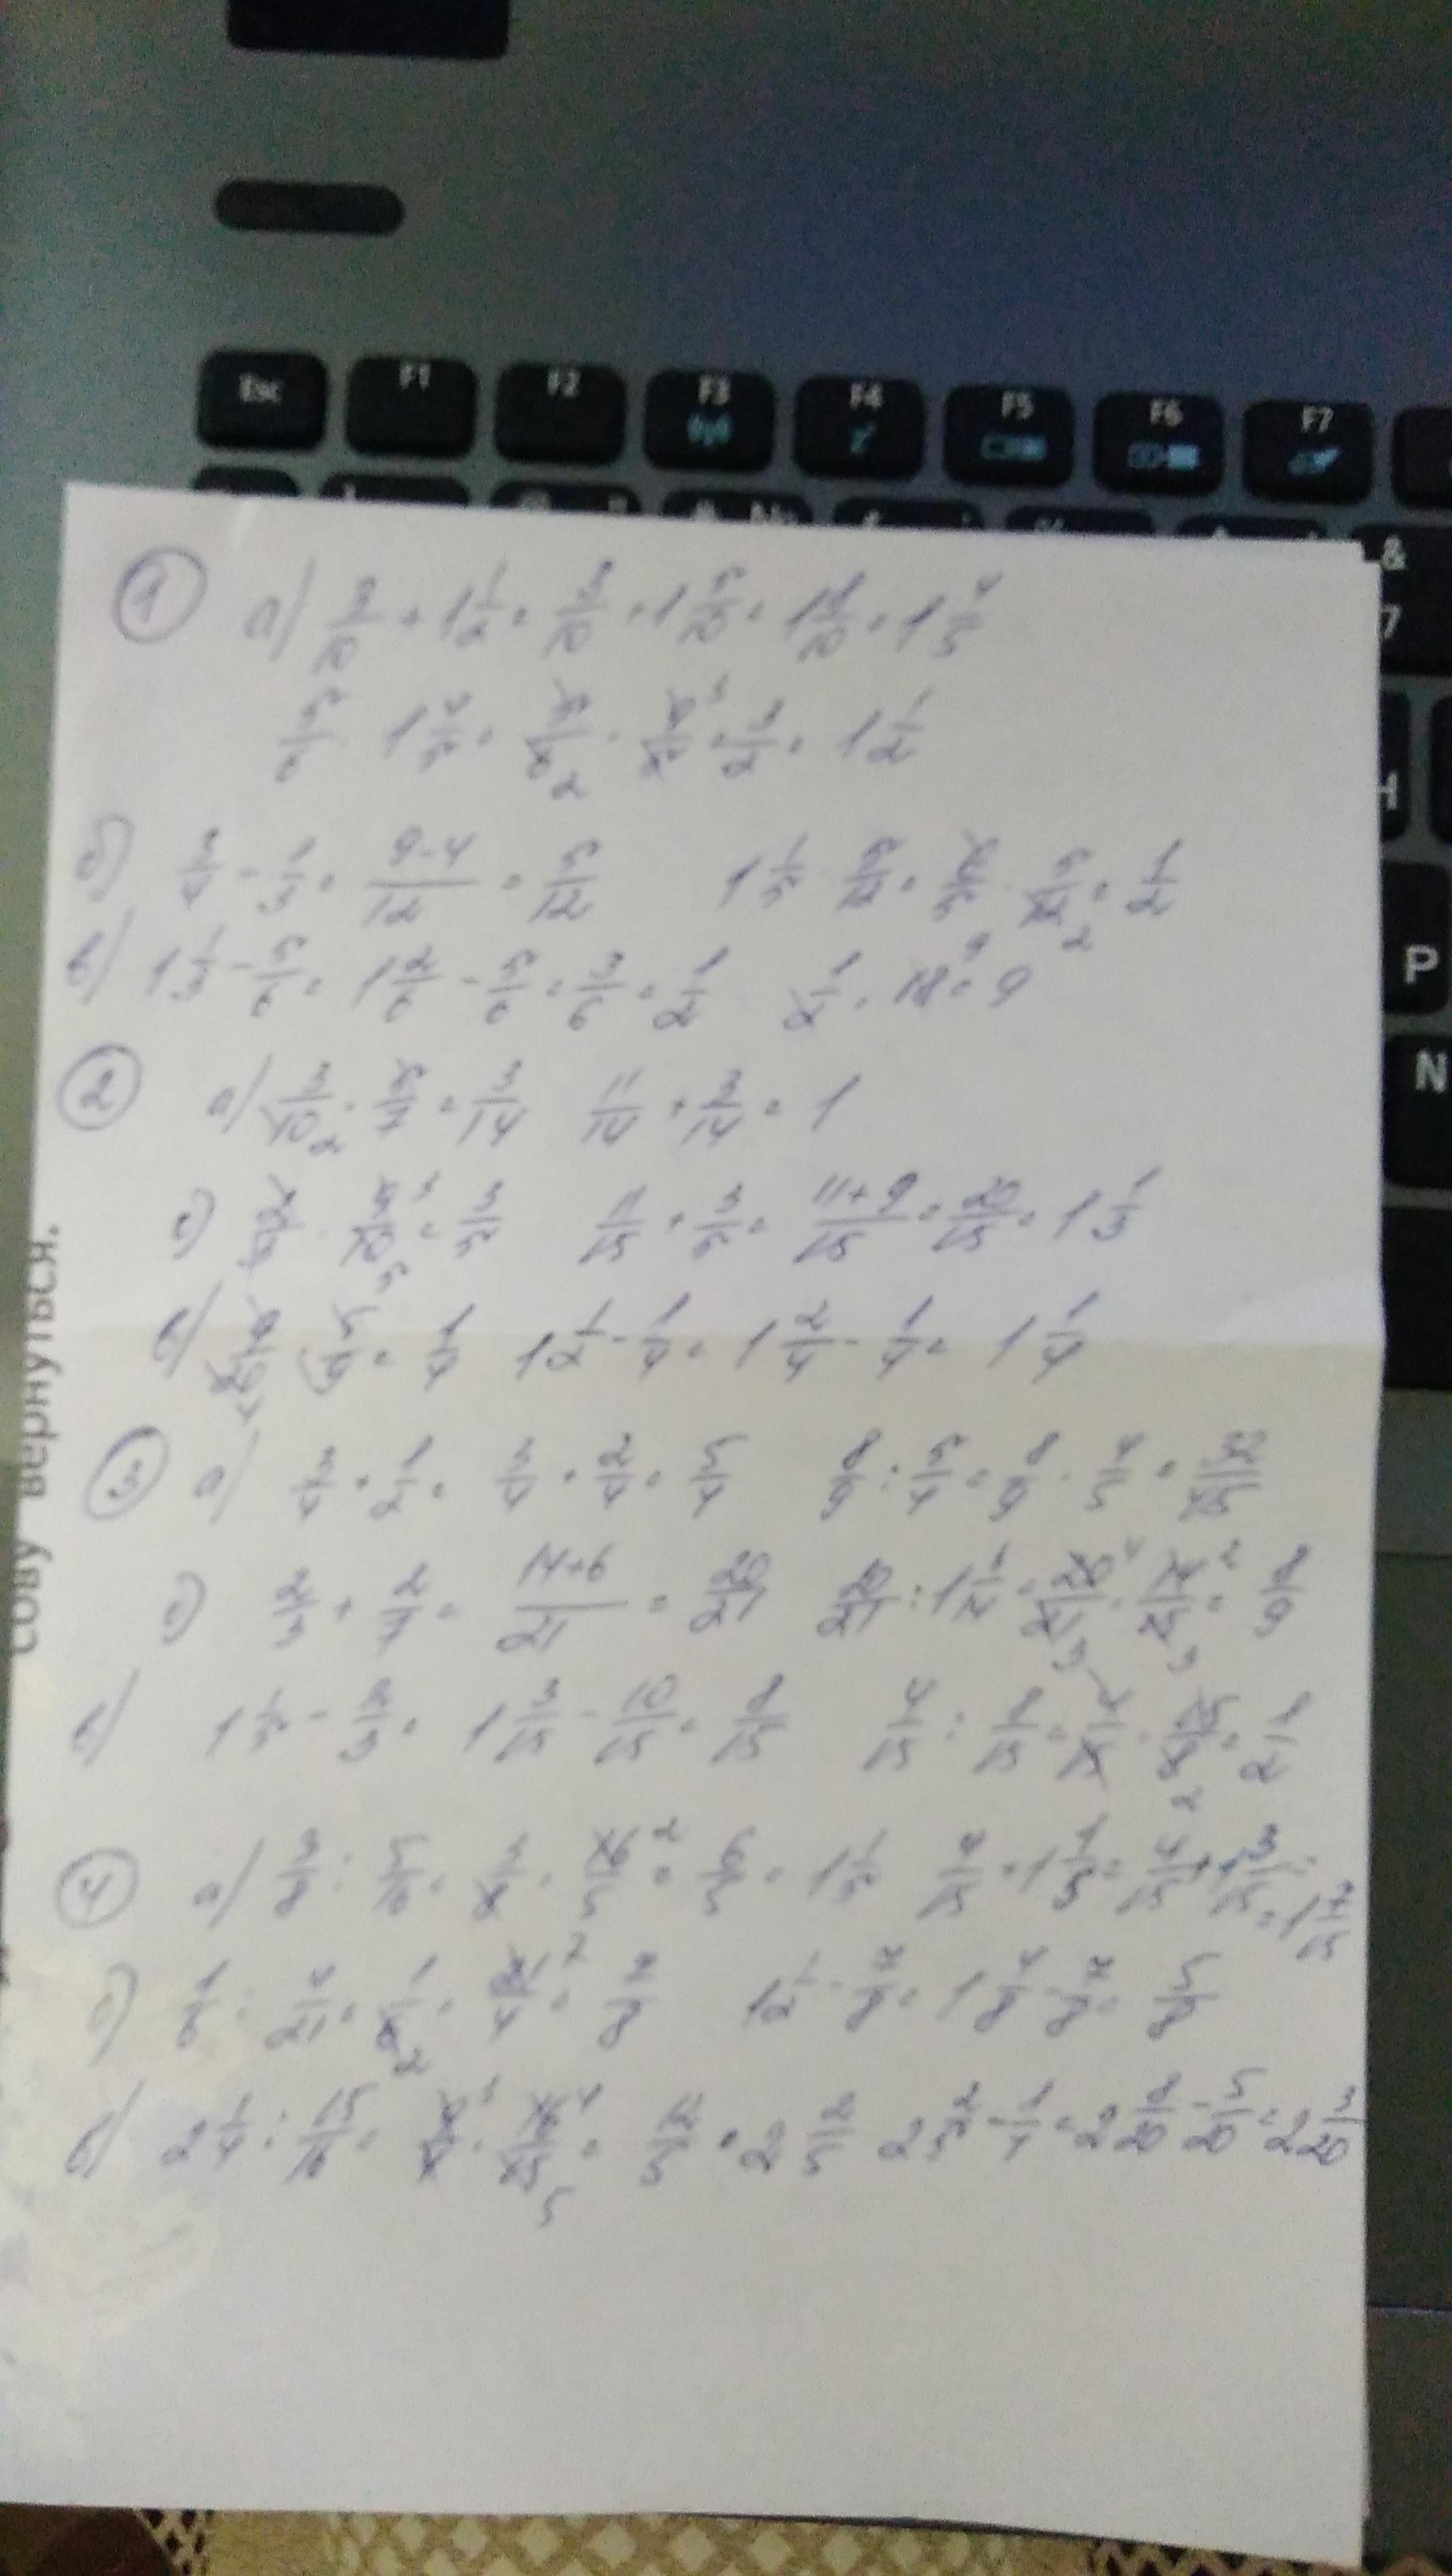 Esc F1 F2 F3 F4 F5 F6 F7
&
7
H
P
N
сову вернуться.
① а) 3/10 + 1 1/2 = 3/10 + 1 5/10 = 1 8/10 = 1 4/5
5/6 · 1 4/5 = 5/6 2 · 9/5 3 = 3/2 = 1 1/2
б) 3/4 - 1/3 = 9-4/12 = 5/12 1 1/5 · 5/12 = 6/5 · 5/12 2 = 1/2
в) 1 1/3 - 5/6 = 1 2/6 - 5/6 = 3/6 = 1/2 1/2 · 18 9 = 9
② а) 3/10 2 · 5/7 = 3/14 11/14 + 3/14 = 1
б) 2/3 · 9/10 3 5 = 3/5 11/15 + 3/5 = 11+9/15 = 20/15 = 1 1/3
в) 9/20 4 · 5/9 = 1/4 1 1/2 - 1/4 = 1 2/4 - 1/4 = 1 1/4
③ а) 3/4 + 1/2 = 3/4 + 2/4 = 5/4 8/9 : 5/4 = 8/9 · 4/5 = 32/45
б) 2/3 + 2/7 = 14+6/21 = 20/21 20/21 : 1 1/14 = 20/21 4 3 · 14/15 2 3 = 8/9
в) 1 1/5 - 2/3 = 1 3/15 - 10/15 = 8/15 4/15 : 8/15 = 4/15 · 15/8 2 = 1/2
④ а) 3/8 : 5/16 = 3/8 · 16/5 2 = 6/5 = 1 1/5 4/15 + 1 1/5 = 4/15 + 1 3/15 =
= 1 7/15
б) 1/6 : 4/21 = 1/6 2 · 21/4 7 = 7/8 1 1/2 - 7/8 = 1 4/8 - 7/8 = 5/8
в) 2 1/4 : 15/16 = 9/4 3 · 16/15 4 5 = 12/5 = 2 2/5 2 2/5 - 1/4 = 2 8/20 - 5/20 = 2 3/20